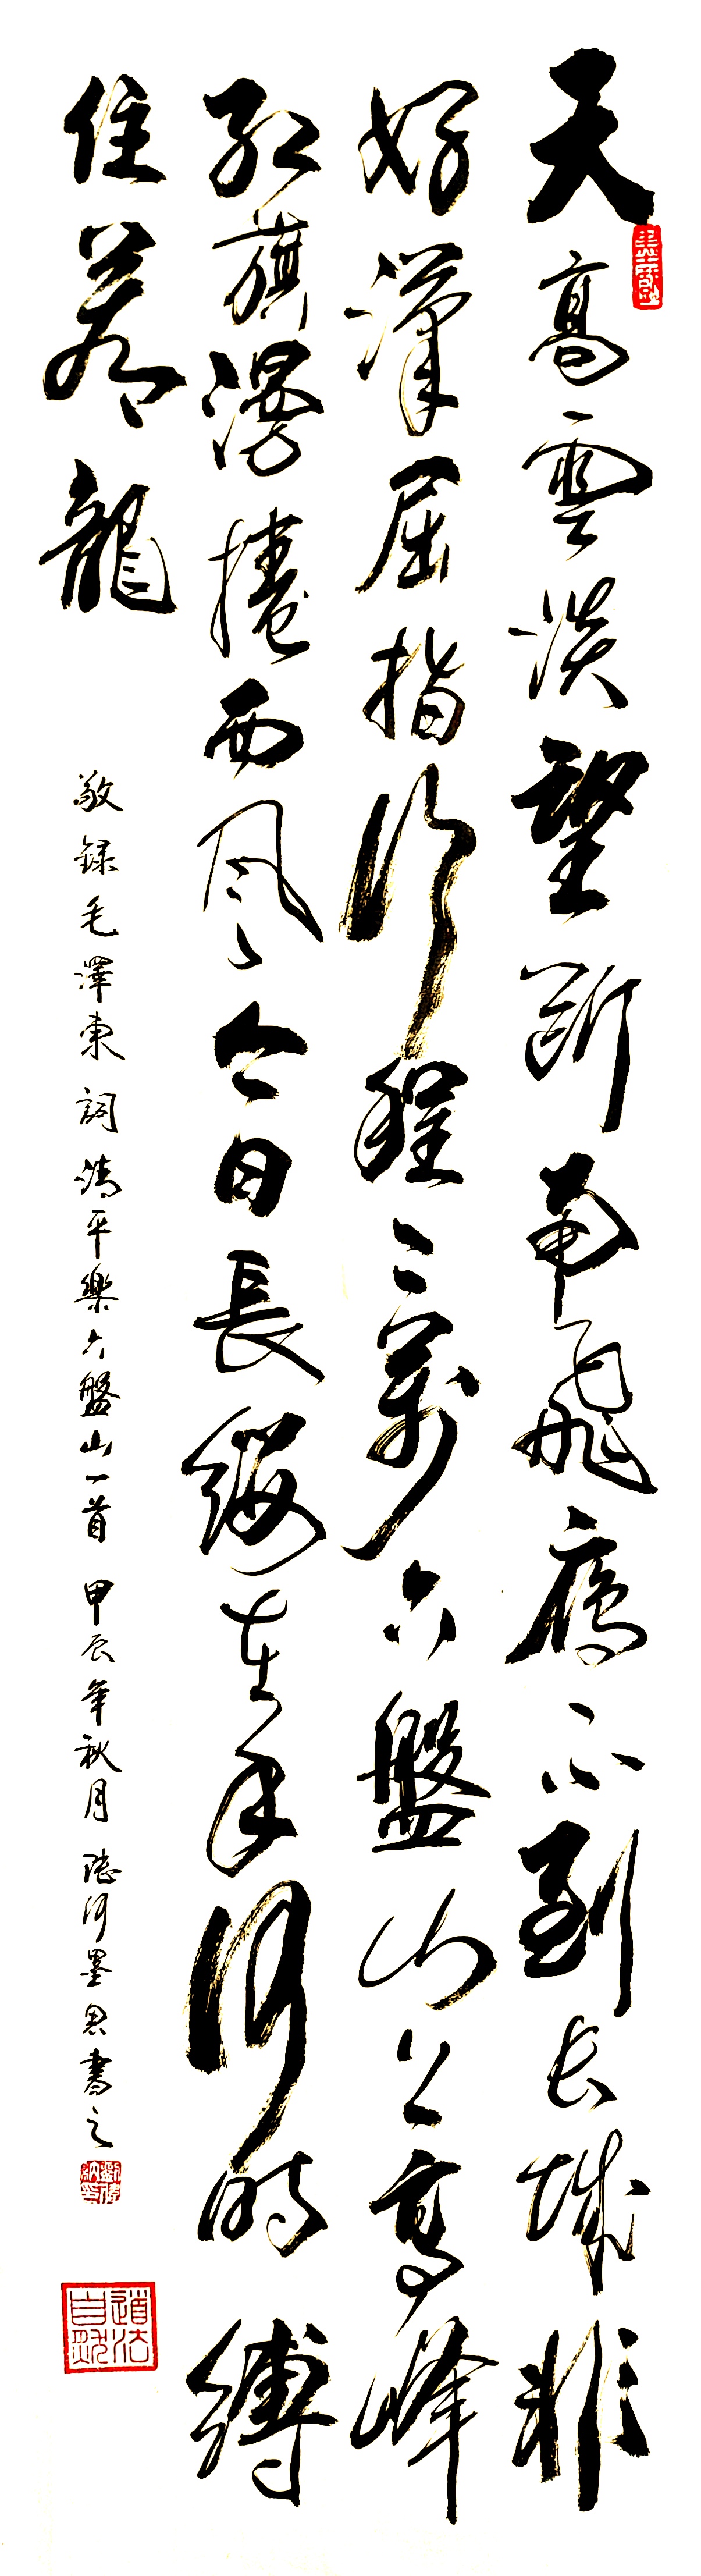 天高雲淡望断南飛雁不到长城非
好漢屈指行程二萬六盤山上高峰
红旗漫捲西风今日長纓在手何时縛
住苍龍
敬録毛澤東詞清平樂六盤山一首 甲辰年秋月 河墨書之
道法自然